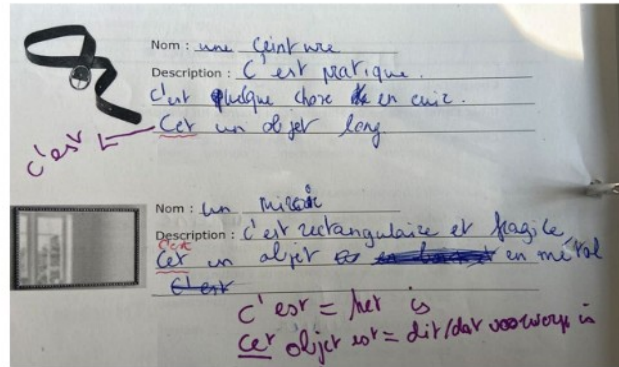 Nom : une ceinture
Description : C'est pratique.
C'est quelque chose en cuir.
c'est Cet un objet long
Nom : un miroir
Description : C'est rectangulaire et fragile,
c'est
Cet un objet en métal
C'est
c'est = het is
Cet objet est = dit/dat voorwerp is